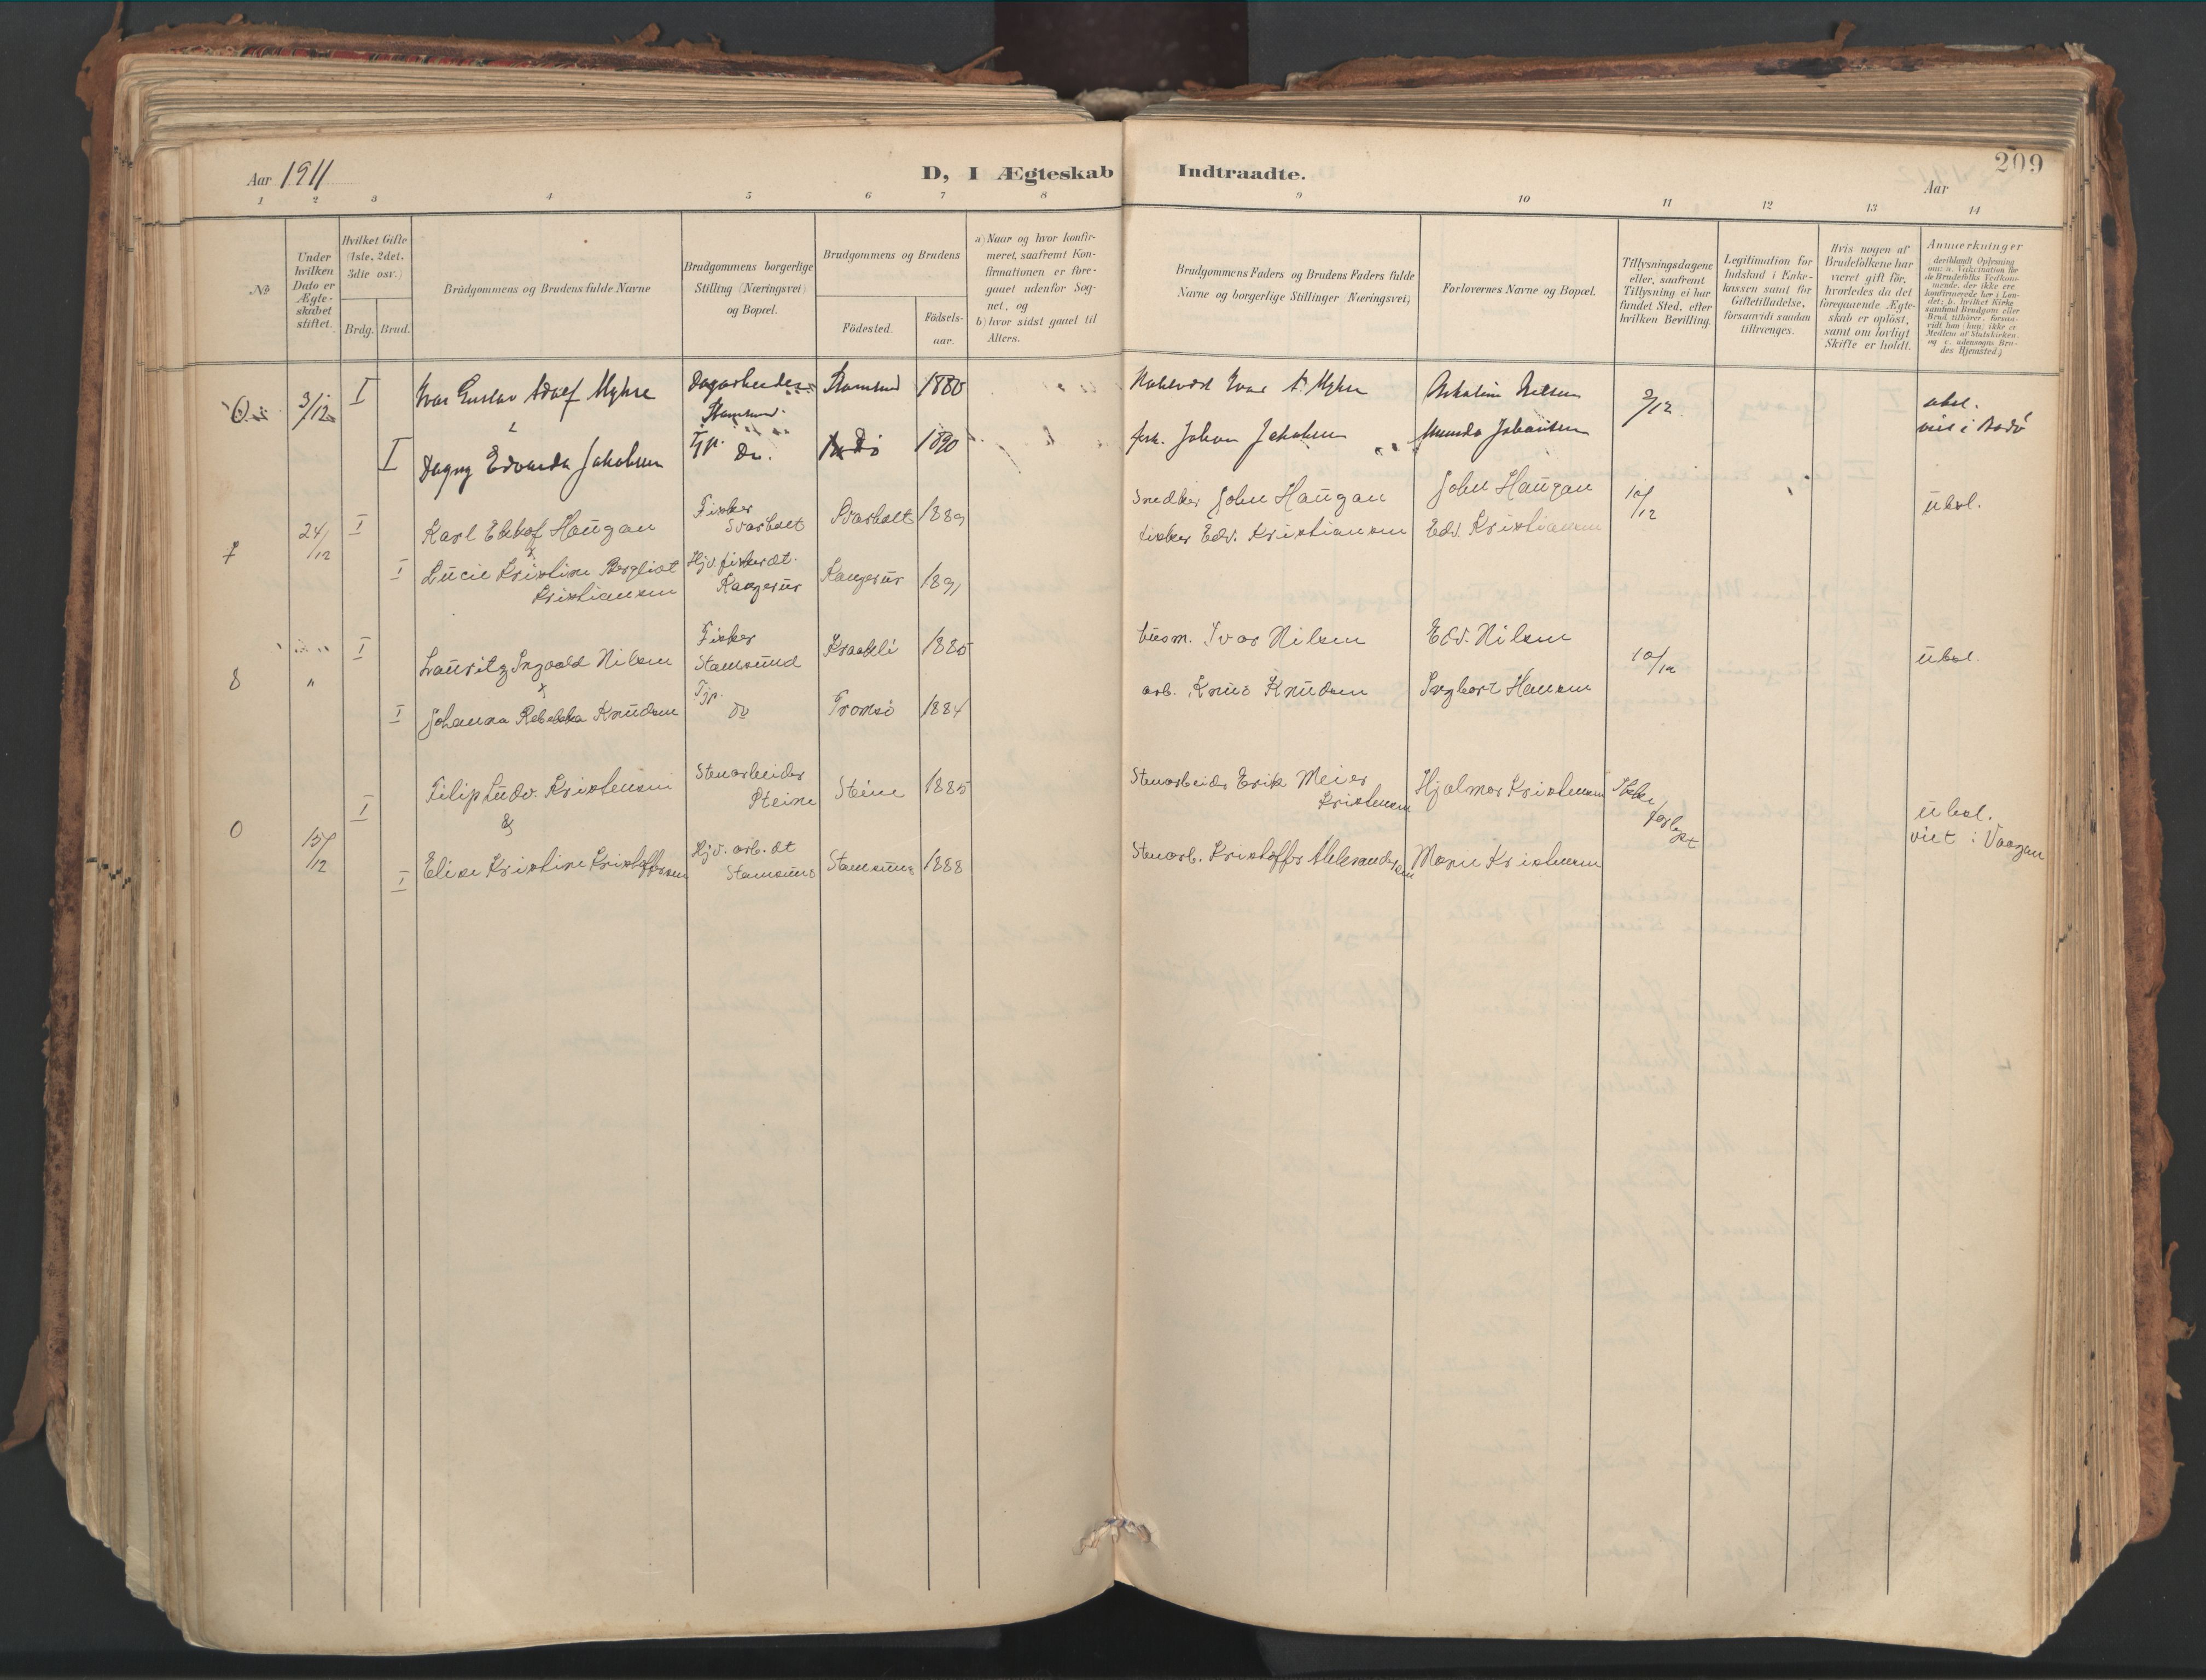 Aar 1911
D, I Ægteskab Indtraadte.
209
Aar
1 2 3 4 5 6 7 8 9 10 11 12 13 14
No.
Under hvilken Dato er Ægteskabet stiftet.
Hvilket Gifte (1ste, 2det, 3die osv.)
Brdg. Brud.
Brudgommens og Brudens fulde Navne
Brudgommens borgerlige Stilling (Næringsvei) og Bopæl.
Brudgommens og Brudens
Fødested.
Fødsels-aar.
a) Naar og hvor konfirmeret, saafremt Konfirmationen er foregaaet udenfor Sognet, og
b) hvor sidst gaaet til Alters.
Brudgommens Faders og Brudens Faders fulde Navne og borgerlige Stillinger (Næringsvei)
Forlovernes Navne og Bopæl.
Tillysningsdagene eller, saafremt Tillysning ei har fundet Sted, efter hvilken Bevilling.
Legitimation for Indskud i Enkekassen samt for Giftetilladelse, forsaavidt saadan tiltrænges.
Hvis nogen af Brudefolkene har været gift før, hvorledes da det foregaaende Ægteskab er opløst, samt om lovligt Skifte er holdt.
Anmærkninger
3/12 I Ivar Gustav Adolf Myhre Dagarbeider Stamsund 1880 Ivar A. Myhre Nilsen 3/12 ubsl.
Stamsund.
I Dagny Edvarda Jakobsen Tjp. Do. 1890 fisk. Johan Jakobsen Johansen viet i Bodø
7 24/12 I Karl Ekhof Haugan Fisker Svarholt Svarholt 1889 Snedker John Haugan John Haugan 10/12 übsl.
x
I Lucie Kristine Bergliot Kristiansen Hjv. fiskerdt. Kangerur Kangerur 1891 fisker Edv. Kristiansen Edv. Kristiansen
8 " I Lauritz Ingvald Nilsen Fisker Stamsund Kraakli 1885 husm. Ivar Nilsen Edv. Nilsen 10/12 übsl.
x
I Johanna Rebekka Knudsen Tjp. do Tromsø 1884 arb. Knud Knudsen Ingbert Hansen
0 15/12 I Filip Ludv. Kristensen Stenarbeider Steine Steine 1885 Stenarbeider Erik Meier Kristensen Hjalmar Kristensen übsl.
&
I Elise Kristine Kristoffersen Hjv. arb. dt Stamsund Stamsund 1888 Stenarb. Kristoffer Aleksandersen Kristensen viet i Vaagan